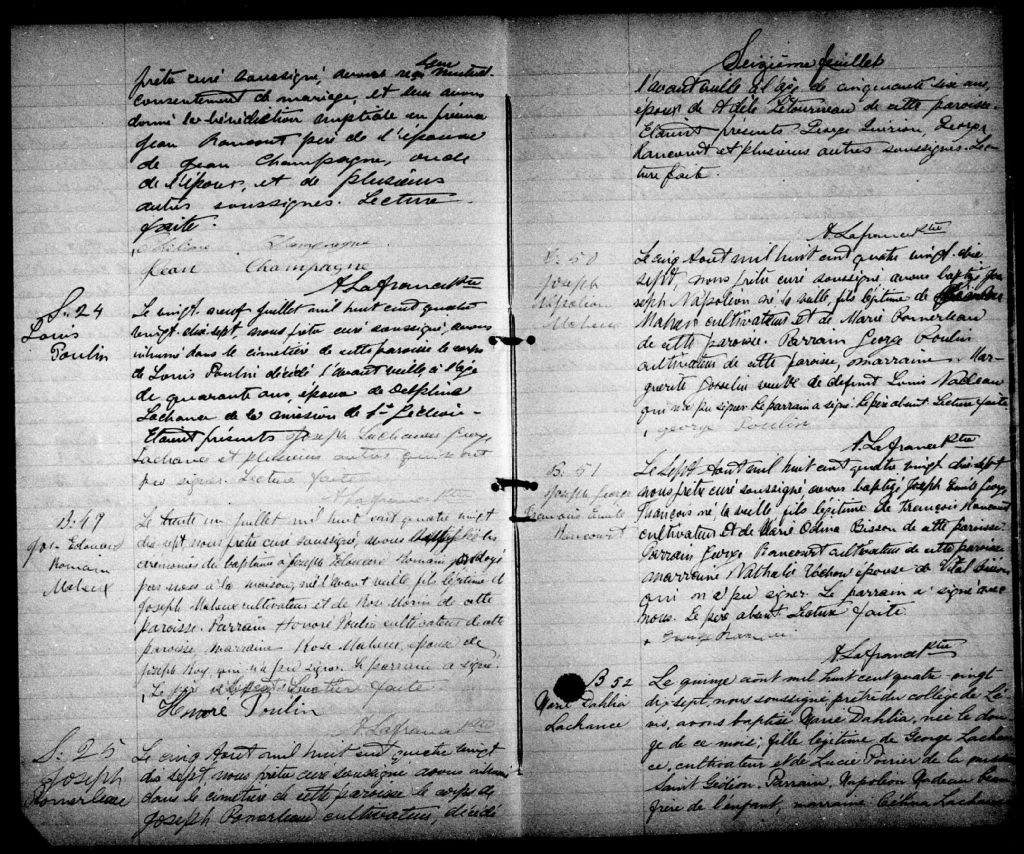 prêtre curé soussigné, avons reçu leur mutuel
consentement de mariage, et leur avons
donné la bénédiction nuptiale en présence
Jean Rancourt père de l'épouse
de Jean Champagne, oncle
de l'époux, et de plusieurs
autres soussignés. Lecture
faite.
Champagne
Jean Champagne
A. Lafrance Ptre
S. 24
Louis
Poulin
Le vingt neuf juillet mil huit cent quatre
vingt-dix-sept, nous prêtre curé soussigné, avons
inhumé dans le cimetière de cette paroisse le corps
de Louis Poulin décédé l'avant veille à l'âge
de quarante ans, époux de Delphine
Lachance de la mission de St Gédéon.
Etaient présents Joseph Lachance George
Lachance et plusieurs autres qui n'ont
pu signer. Lecture faite
A. Lafrance Ptre
B. 49
Jos. Edouard
Romain
Maheux
Le trente un juillet mil huit cent quatre vingt
dix-sept nous prêtre curé soussigné, avons les
cérémonies du baptême à Joseph Edouard Romain, ondoyé
par nous à la maison, né l'avant veille fils légitime de
Joseph Maheux cultivateur et de Rose Morin de cette
paroisse. Parrain Honoré Poulin cultivateur de cette
paroisse marraine Rose Maheux, épouse de
Joseph Roy, qui n'a pu signer. Le parrain a signé.
Le père absent Lecture faite
Honoré Poulin
A. Lafrance Ptre
S. 25
Joseph
Pomerleau
Le cinq Aout mil huit cent quatre vingt
dix sept nous prêtre curé soussigné avons inhumé
dans le cimetière de cette paroisse le corps de
Joseph Pomerleau cultivateur, décédé
Seizième feuillet
l'avant veille à l'âge de cinquante six ans,
époux de Adèle Létourneau de cette paroisse.
Etaient présents George Quirion, George
Rancourt et plusieurs autres soussignés. Lec-
ture faite.
A. Lafrance Ptre
B. 50
Joseph
Napoléon
Maheux
Le cinq Aout mil huit cent quatre vingt-dix
sept, nous prêtre curé soussigné avons baptisé Jo-
seph Napoléon né la veille, fils légitime de
Maheux cultivateur et de Marie Pomerleau
de cette paroisse. Parrain George Poulin
cultivateur de cette paroisse, marraine Mar-
guerite Gosselin veuve de défunt Louis Nadeau
qui n'a pu signer. Le parrain a signé. Le père absent Lecture faite
george Poulin
A. Lafrance Ptre
B. 51
Joseph George
François Emile
Rancourt
Le Sept Aout mil huit cent quatre vingt dix sept
nous prêtre curé soussigné avons baptisé Joseph Emile George
François né la veille fils légitime de François Rancourt
cultivateur Et de Marie Odina Bisson de cette paroisse
Parrain George Rancourt cultivateur de cette paroisse
marraine Nathalie Vachon épouse de Vital Bisson
qui n'a pu signer. Le parrain a signé avec
nous. Le père absent Lecture faite
George Rancourt
A. Lafrance Ptre
B 52
Marie Dahlia
Lachance
Le quinze août mil huit cent quatre-vingt
dix sept, nous soussigné prêtre du collège de Lé-
vis, avons baptisé Marie Dahlia, née le dou-
ze de ce mois, fille légitime de George Lachan-
ce, cultivateur et de Lucie Poirier de la mission
Saint Gédéon. Parrain, Napoléon Nadeau beau
frère de l'enfant, marraine Célina Lachance